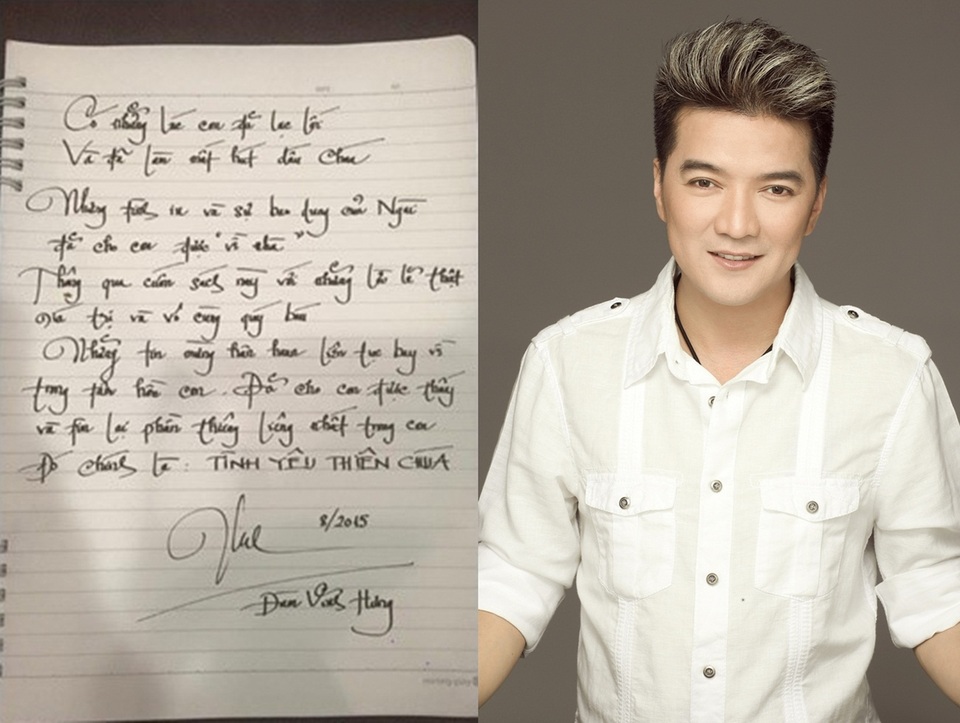 Có những lúc con đã lạc lối
Và đã lần mất hút dấu Chúa
Những phút in và sứ ban duy của Người
đã cho con được "về nhà"
Thông qua cuốn sách này với những lần lễ thật
giá trị và vô cùng quý báu
Những tin mừng hân hoan liên tục bay về
trong tâm hồn con. Đã cho con được thấy
và tìm lại phần thiêng liêng nhất trong con
Đó chính là : TÌNH YÊU THIÊN CHÚA
8/2015
Đàm Vĩnh Hưng